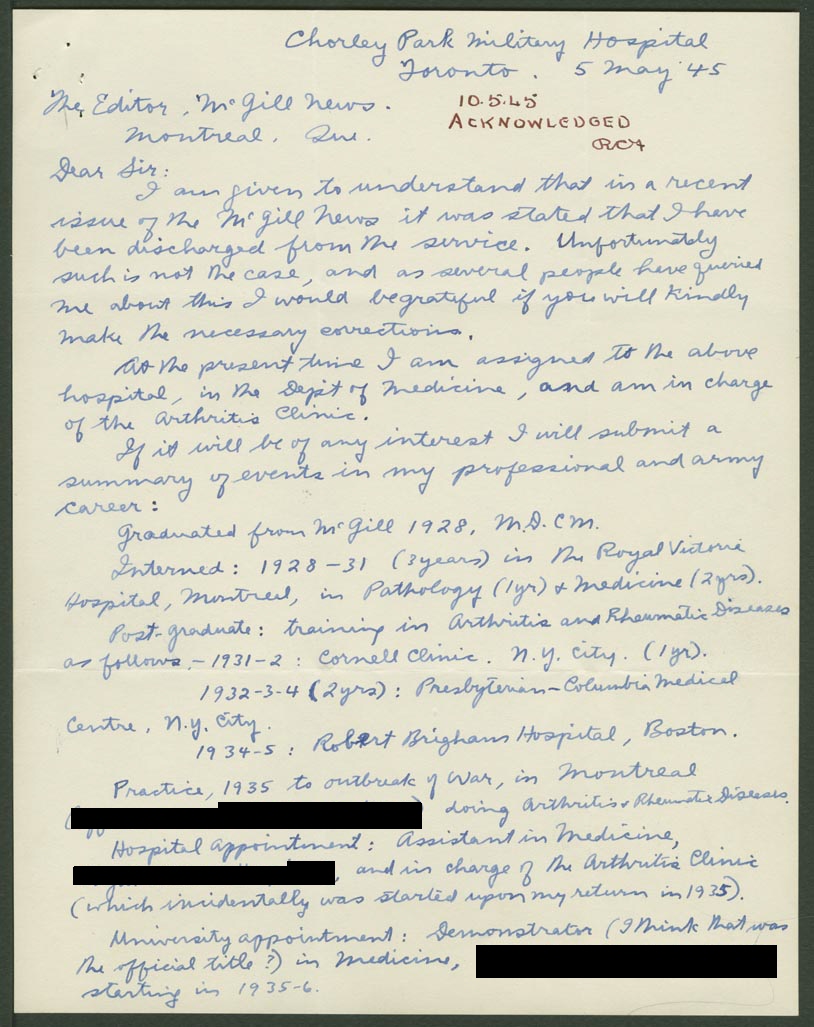 Chorley Park Military Hospital
Toronto. 5 May '45
The Editor, McGill News.
Montreal. Que.
10.5.45
ACKNOWLEDGED
Dear Sir:
I am given to understand that in a recent
issue of the McGill News it was stated that I have
been discharged from the service. Unfortunately
such is not the case, and as several people have queried
me about this I would be grateful if you will kindly
make the necessary corrections.
At the present time I am assigned to the above
hospital, in the Dep't of Medicine, and am in charge
of the Arthritis Clinic.
If it will be of any interest I will submit a
summary of events in my professional and army
career:
Graduated from McGill 1928, M.D. CM.
Interned: 1928-31 (3 years) in the Royal Victoria
Hospital, Montreal, in Pathology (1yr) & Medicine (2yrs).
Post-graduate: training in Arthritis and Rheumatic Diseases
as follows,- 1931-2: Cornell Clinic. N.Y. City. (1yr).
1932-3-4 (2yrs): Presbyterian-Columbia Medical
Centre, N.Y. City.
1934-5: Robert Brigham Hospital, Boston.
Practice, 1935 to outbreak of War, in Montreal
) doing Arthritis & Rheumatic Diseases.
Hospital appointment: Assistant in Medicine,
, and in charge of the Arthritis Clinic
(which incidentally was started upon my return in 1935).
University appointment: Demonstrator (I think that was
the official title?) in Medicine,
starting in 1935-6.